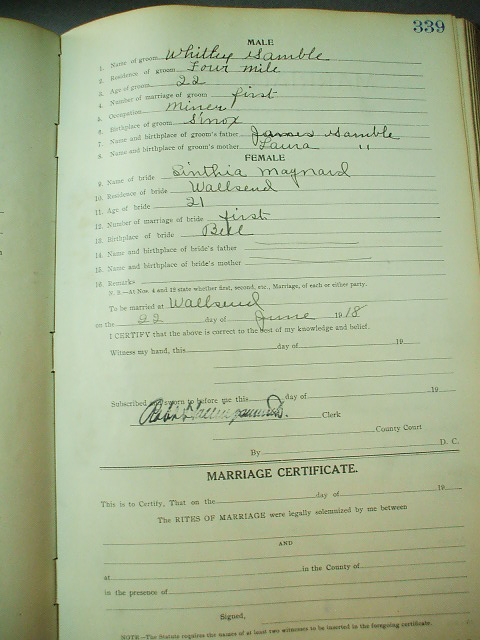 339
MALE
1. Name of groom Whitley Gamble
2. Residence of groom Four mile
3. Age of groom 22
4. Number of marriage of groom first
5. Occupation Miner
6. Birthplace of groom
7. Name and birthplace of groom's father James Gamble
8. Name and birthplace of groom's mother Laura "
FEMALE
9. Name of bride Sinthia Maynard
10. Residence of bride Wallsend
11. Age of bride 21
12. Number of marriage of bride first
13. Birthplace of bride Bell
14. Name and birthplace of bride's father
15. Name and birthplace of bride's mother
16. Remarks
N. B.—At Nos. 4 and 12 state whether first, second, etc., Marriage, of each or either party.
To be married at Wallsend
on the 22 day of June 1918
I CERTIFY that the above is correct to the best of my knowledge and belief.
Witness my hand, this day of 19
Subscribed and sworn to before me this day of 19
Clerk
County Court
By D. C.
MARRIAGE CERTIFICATE.
This is to Certify, That on the day of 19
The RITES OF MARRIAGE were legally solemnized by me between
AND
at in the County of
in the presence of
Signed,
NOTE—The Statute requires the names of at least two witnesses to be inserted in the foregoing certificate.